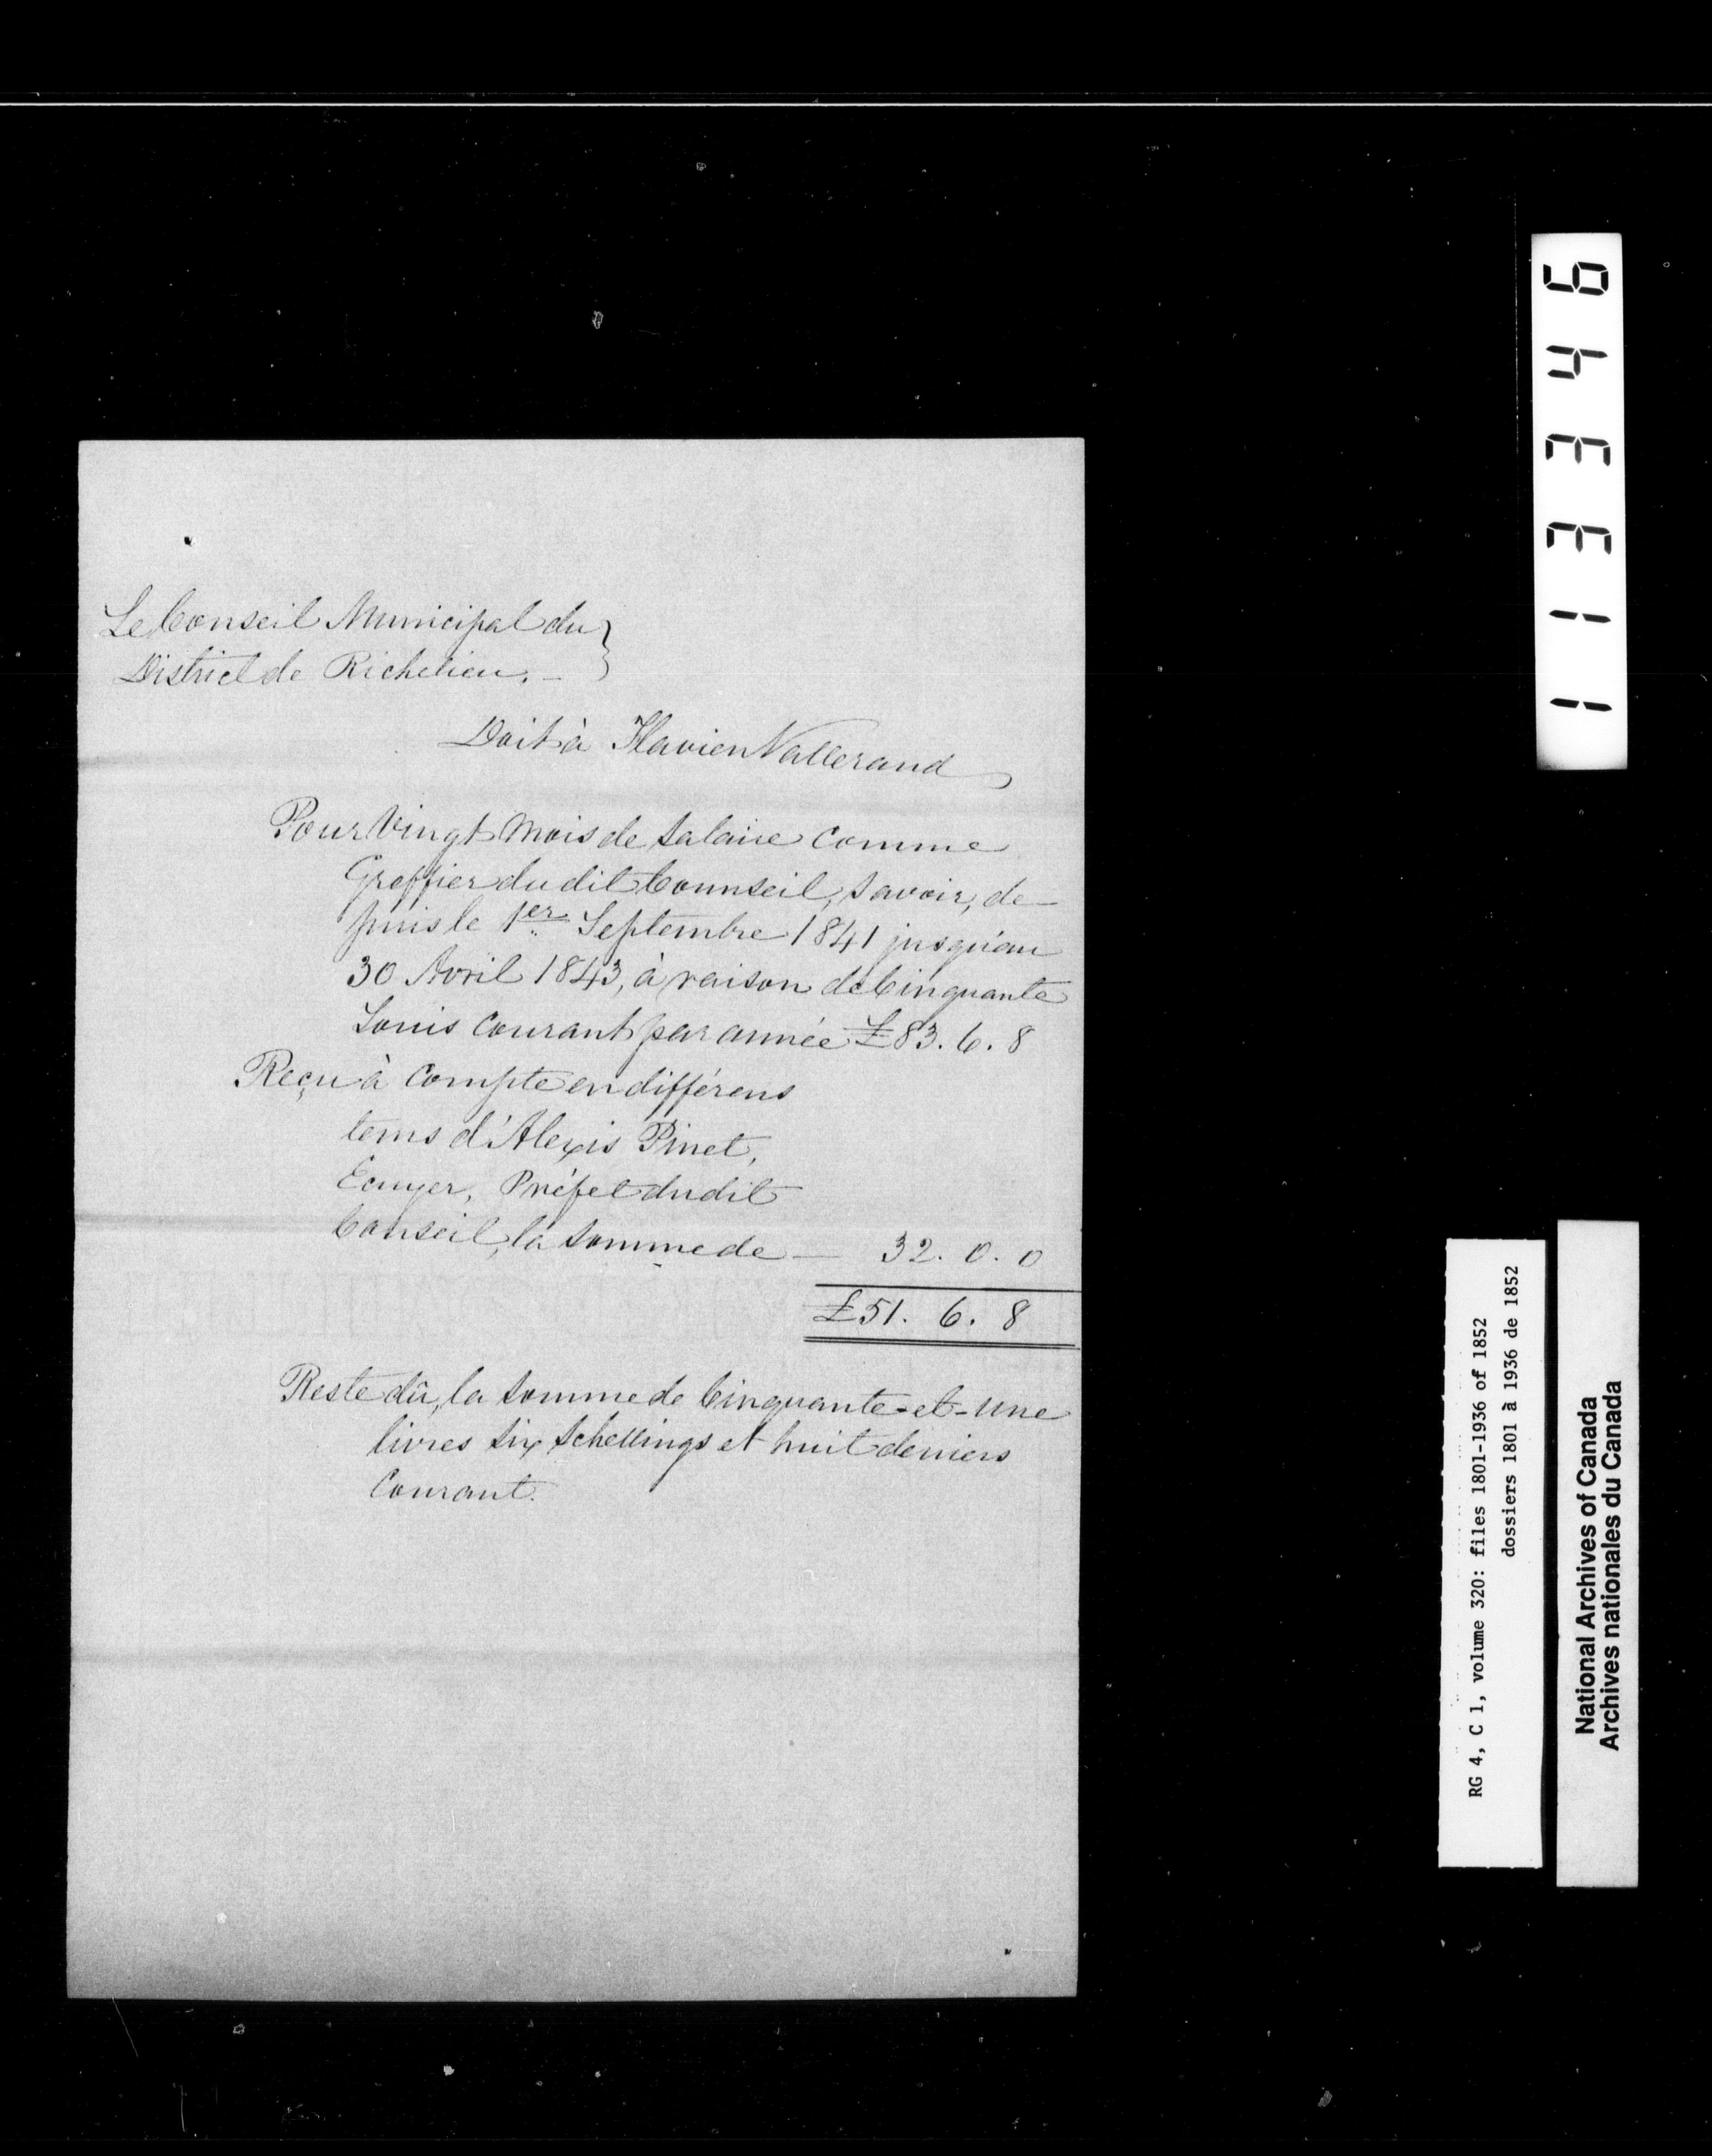 Le Conseil Municipal du }
District de Richelieu. -
Doit à Flavien Vallerand
Pour Vingt Mois de Salaire Comme
Greffier du dit Counseil, Savoir, de-
puis le 1er Septembre 1841 jusqu'au
30 Avril 1843, à raison de Cinquante
Louis Courant par année £83. 6. 8
Reçu à Compte en différens
tems d'Alexis Pinet,
Ecuyer, Préfet du dit
Conseil, la Somme de — 32. 0. 0
£51. 6. 8
Reste dû, la Somme de Cinquante-et-Une
livres Six Schellings et huit deniers
Courant.
113346
RG 4, C 1, volume 320: files 1801-1936 of 1852
dossiers 1801 à 1936 de 1852
National Archives of Canada
Archives nationales du Canada